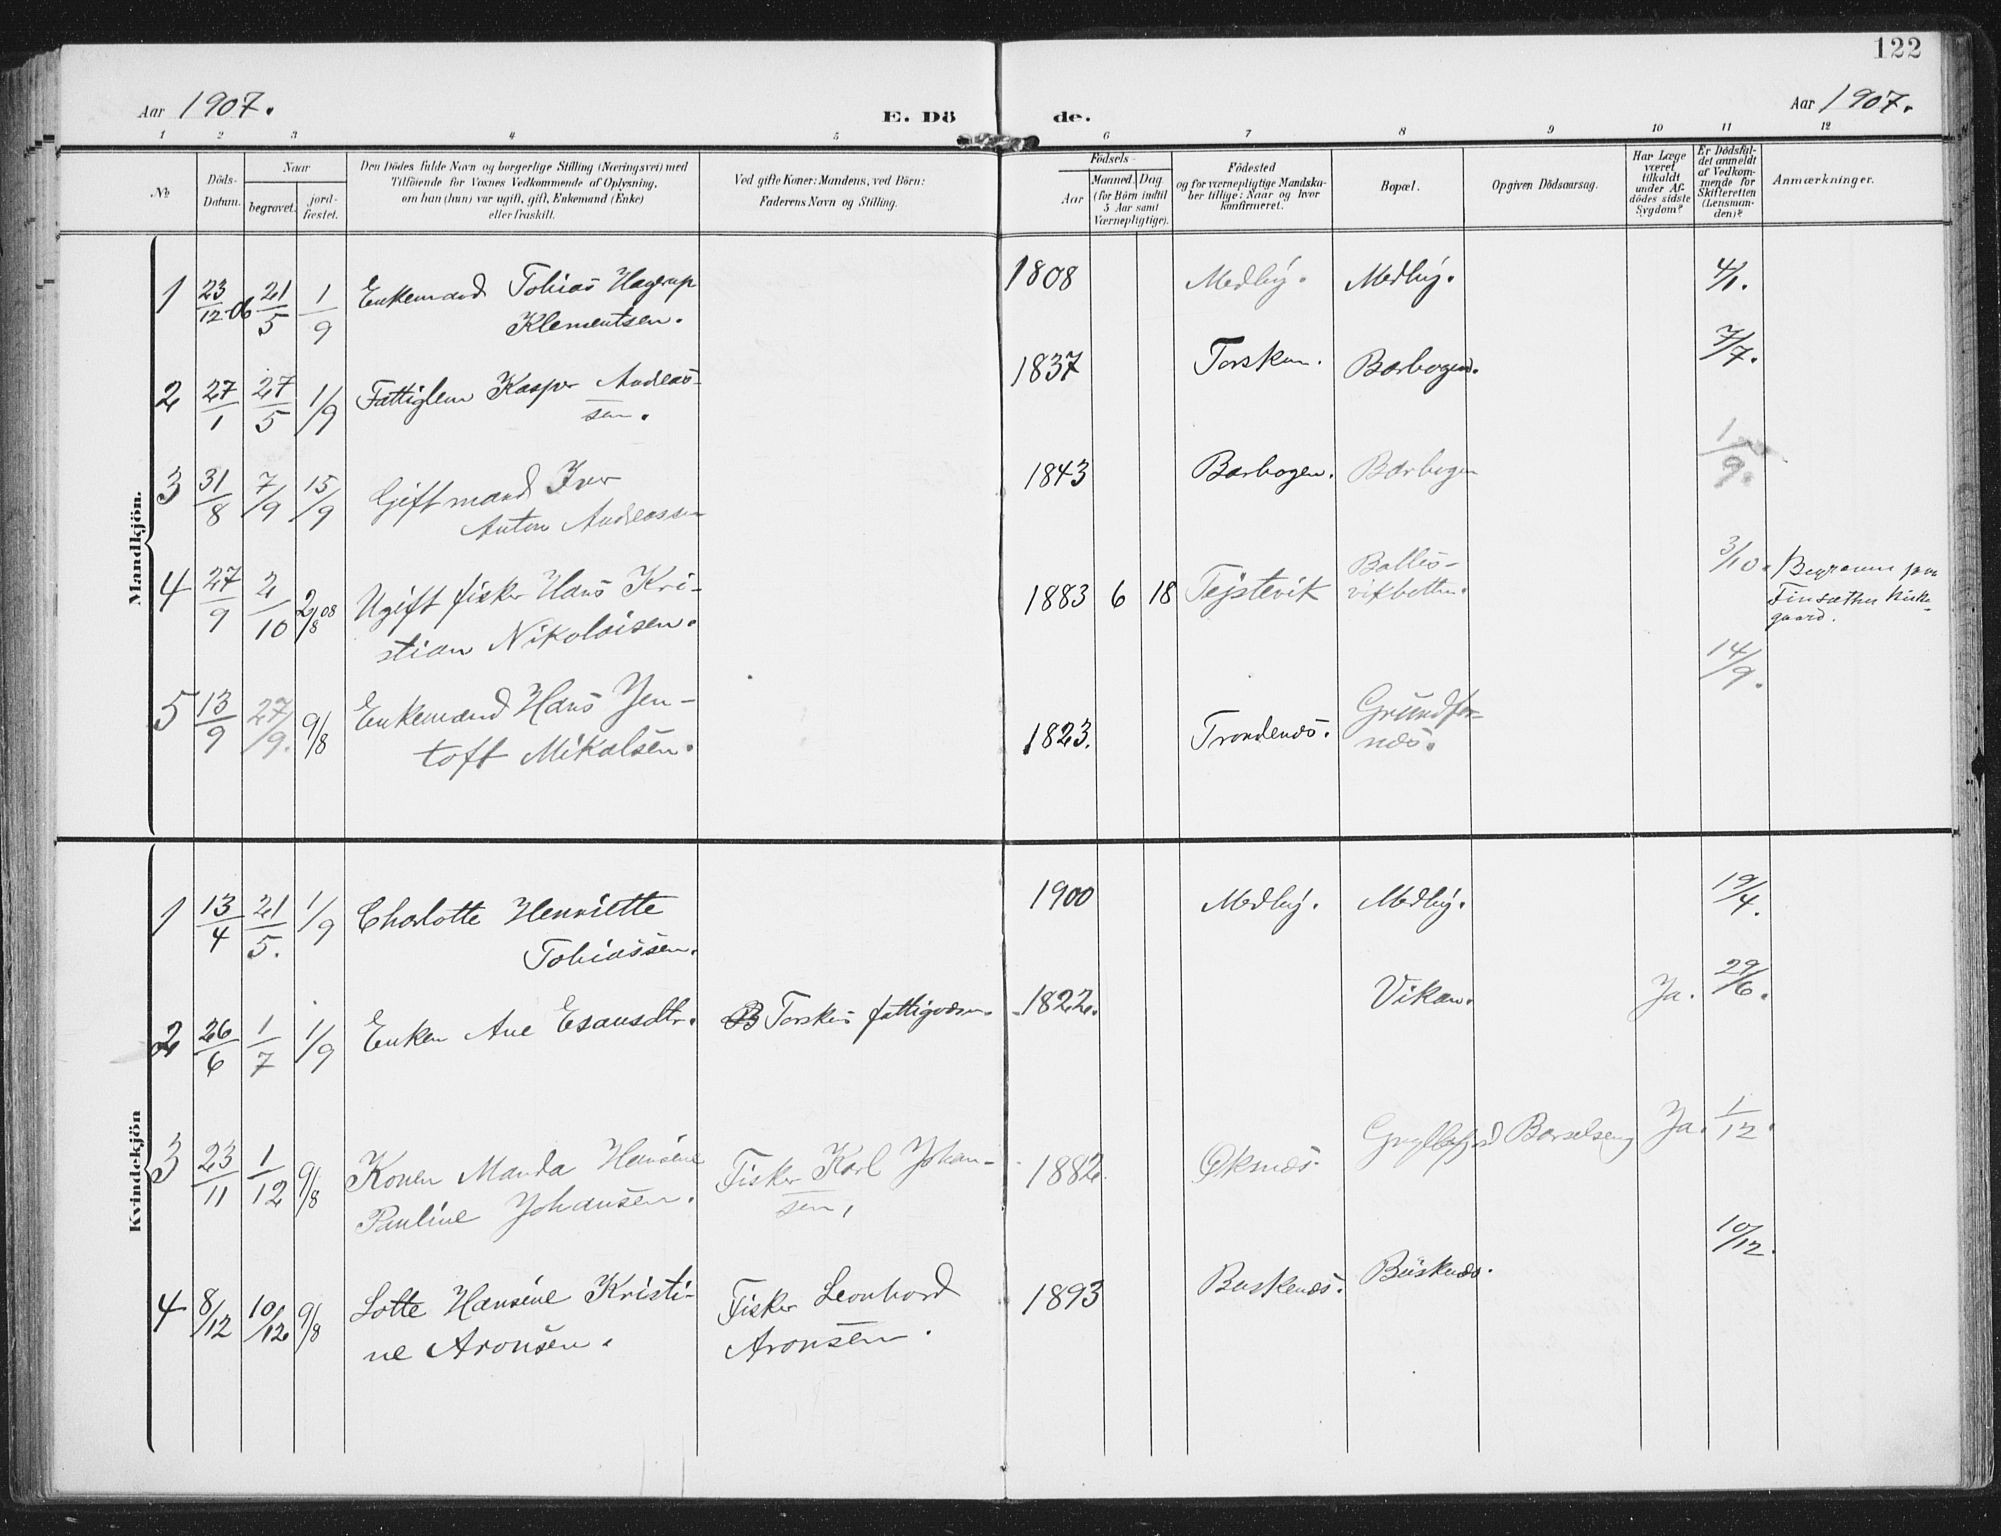 122
Aar 1907.
E. Dö de.
Aar 1907.
1 2 3 4 5 6 7 8 9 10 11 12
№
Döds-
Datum.
Naar
begravet.
jord-
fæstet.
Den Dödes fulde Navn og borgerlige Stilling (Næringsvei) med
Tilföiende for Voxnes Vedkommende af Oplysning,
om han (hun) var ugift, gift, Enkemand (Enke)
eller fraskilt.
Ved gifte Koner: Mandens, ved Börn:
Faderens Navn og Stilling.
Födsels-
Aar
Maaned. Dag.
(for Börn indtil
5 Aar samt
Værnepligtige).
Födested
og for værnepligtige Mandska-
ber tillige: Naar og hvor
konfirmeret.
Bopæl.
Opgiven Dödsaarsag.
Har Læge
været
tilkaldt
under Af-
dödes sidste
Sygdom?
Er Dödsfal-
det anmeldt
af Vedkom-
mende for
Skifteretten
(Lensman-
den)?
Anmærkninger.
Mandkjön.
1 23/12-06 21/5 1/9 Enkemand Tobias Hagerup
Klementsen.
1808 Medby. Medby. 4/1.
2 27/1 27/5 1/9 Fattiglem Kasper Andreas-
sen.
1837 Torsken. Barbogen. 7/7.
3 31/8 7/9 15/9 Gift mand Iver
Anton Andreassen
1843 Barbogen. Barbogen 1/9.
4 27/9 2/10 2/8 08 Ugift fisker Hans Kri-
stian Nikolaisen.
1883 6 18 Tejstevik Balles-
vikbotten.
3/10. Begraven paa
Finsæther kirke-
gaard.
5 13/9 27/9. 9/8 Enkemand Hans Jen-
toft Mikalsen.
1823. Trondenes. Grundfar-
nes.
14/9.
Kvindekjön
1 13/4 21/5. 1/9 Charlotte Henriette
Tobiassen.
1900 Medby. Medby. 19/4.
2 26/6 1/7 1/9 Enken Ane Esausdtr. Torskens fattigvæsen. 1822. Vikan. Ja. 29/6.
3 23/11 1/12 9/8 Konen Manda Hansine
Pauline Johansen.
Fisker Karl Johan-
sen,
1882. Øksnes. Gryllefjord Barselseng Ja. 1/12.
4 8/12 10/12 9/8 Lotte Hansine Kristi-
ne Aronsen.
Fisker Leonhard
Aronsen.
1893 Buskenes. Buskenes. 10/12.